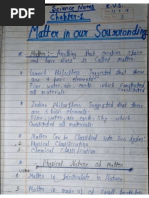 Science Notes
Chapter-1
Matter in our Sourrounding
* Matter :- Anything that occupies space
and has mass is called Matter.
* Greek Philoshers Suggested that there
are 4 basic elements
Fire, water, air, earth which constituted
all materials.
* Indian Philoshers Suggested that there
are 5 basic elements
Fire, water, air, earth, sky which constituted
all materials
* Matter Can be Classified into
Physical Classification
Chemical Classification
Physical Nature of Matter
* Matter is Particulate in Nature
* Matter is made of Small Particles